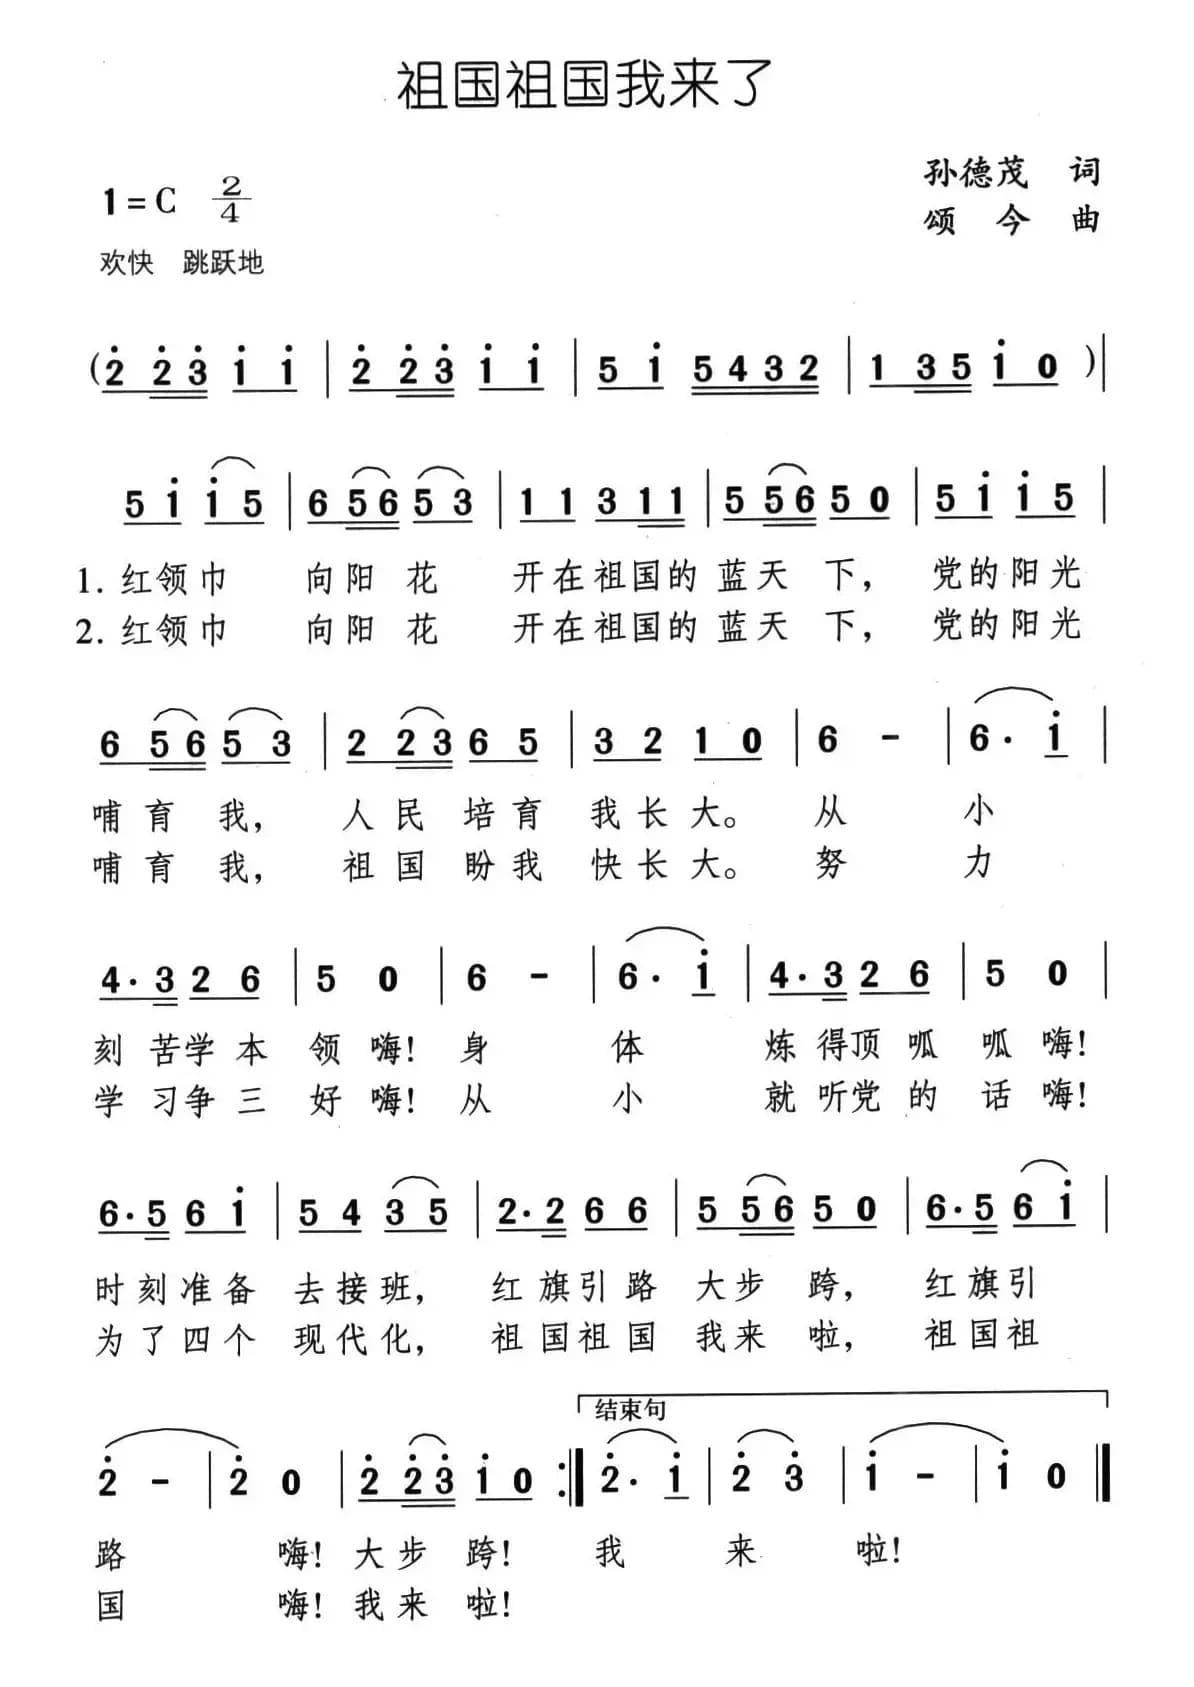 祖国祖国我来了
孙德茂 词
1=C 2/4
颂今 曲
欢快 跳跃地
(2̇ 2̇3̇ 1̇ 1̇ | 2̇ 2̇3̇ 1̇ 1̇ | 5 1̇ 5432 | 1 35 1̇ 0 )|
5 1̇ 1̇ 5 | 6 56 5 3 | 1 1 3 11 | 5 56 5 0 | 5 1̇ 1̇ 5 |
1. 红领巾 向阳花 开在祖国的蓝天下, 党的阳光
2. 红领巾 向阳花 开在祖国的蓝天下, 党的阳光
6 56 5 3 | 2 23 6 5 | 3 2 1 0 | 6 - | 6· 1̇ |
哺育我, 人民培育我长大。从小
哺育我, 祖国盼我快长大。努力
4·3 2 6 | 5 0 | 6 - | 6· 1̇ | 4·3 2 6 | 5 0 |
刻苦学本领嗨! 身体炼得顶呱呱嗨!
学习争三好嗨! 从小就听党的话嗨!
6·5 6 1̇ | 5 4 3 5 | 2·2 6 6 | 5 56 5 0 | 6·5 6 1̇ |
时刻准备去接班, 红旗引路大步跨, 红旗引
为了四个现代化, 祖国祖国我来啦, 祖国祖
结束句
2̇ - | 2̇ 0 | 2̇ 2̇3̇ 1̇ 0 :‖ 2̇· 1̇ | 2̇ 3̇ | 1̇ - | 1̇ 0 ‖
路 嗨! 大步跨! 我来啦!
国 嗨! 我来啦!